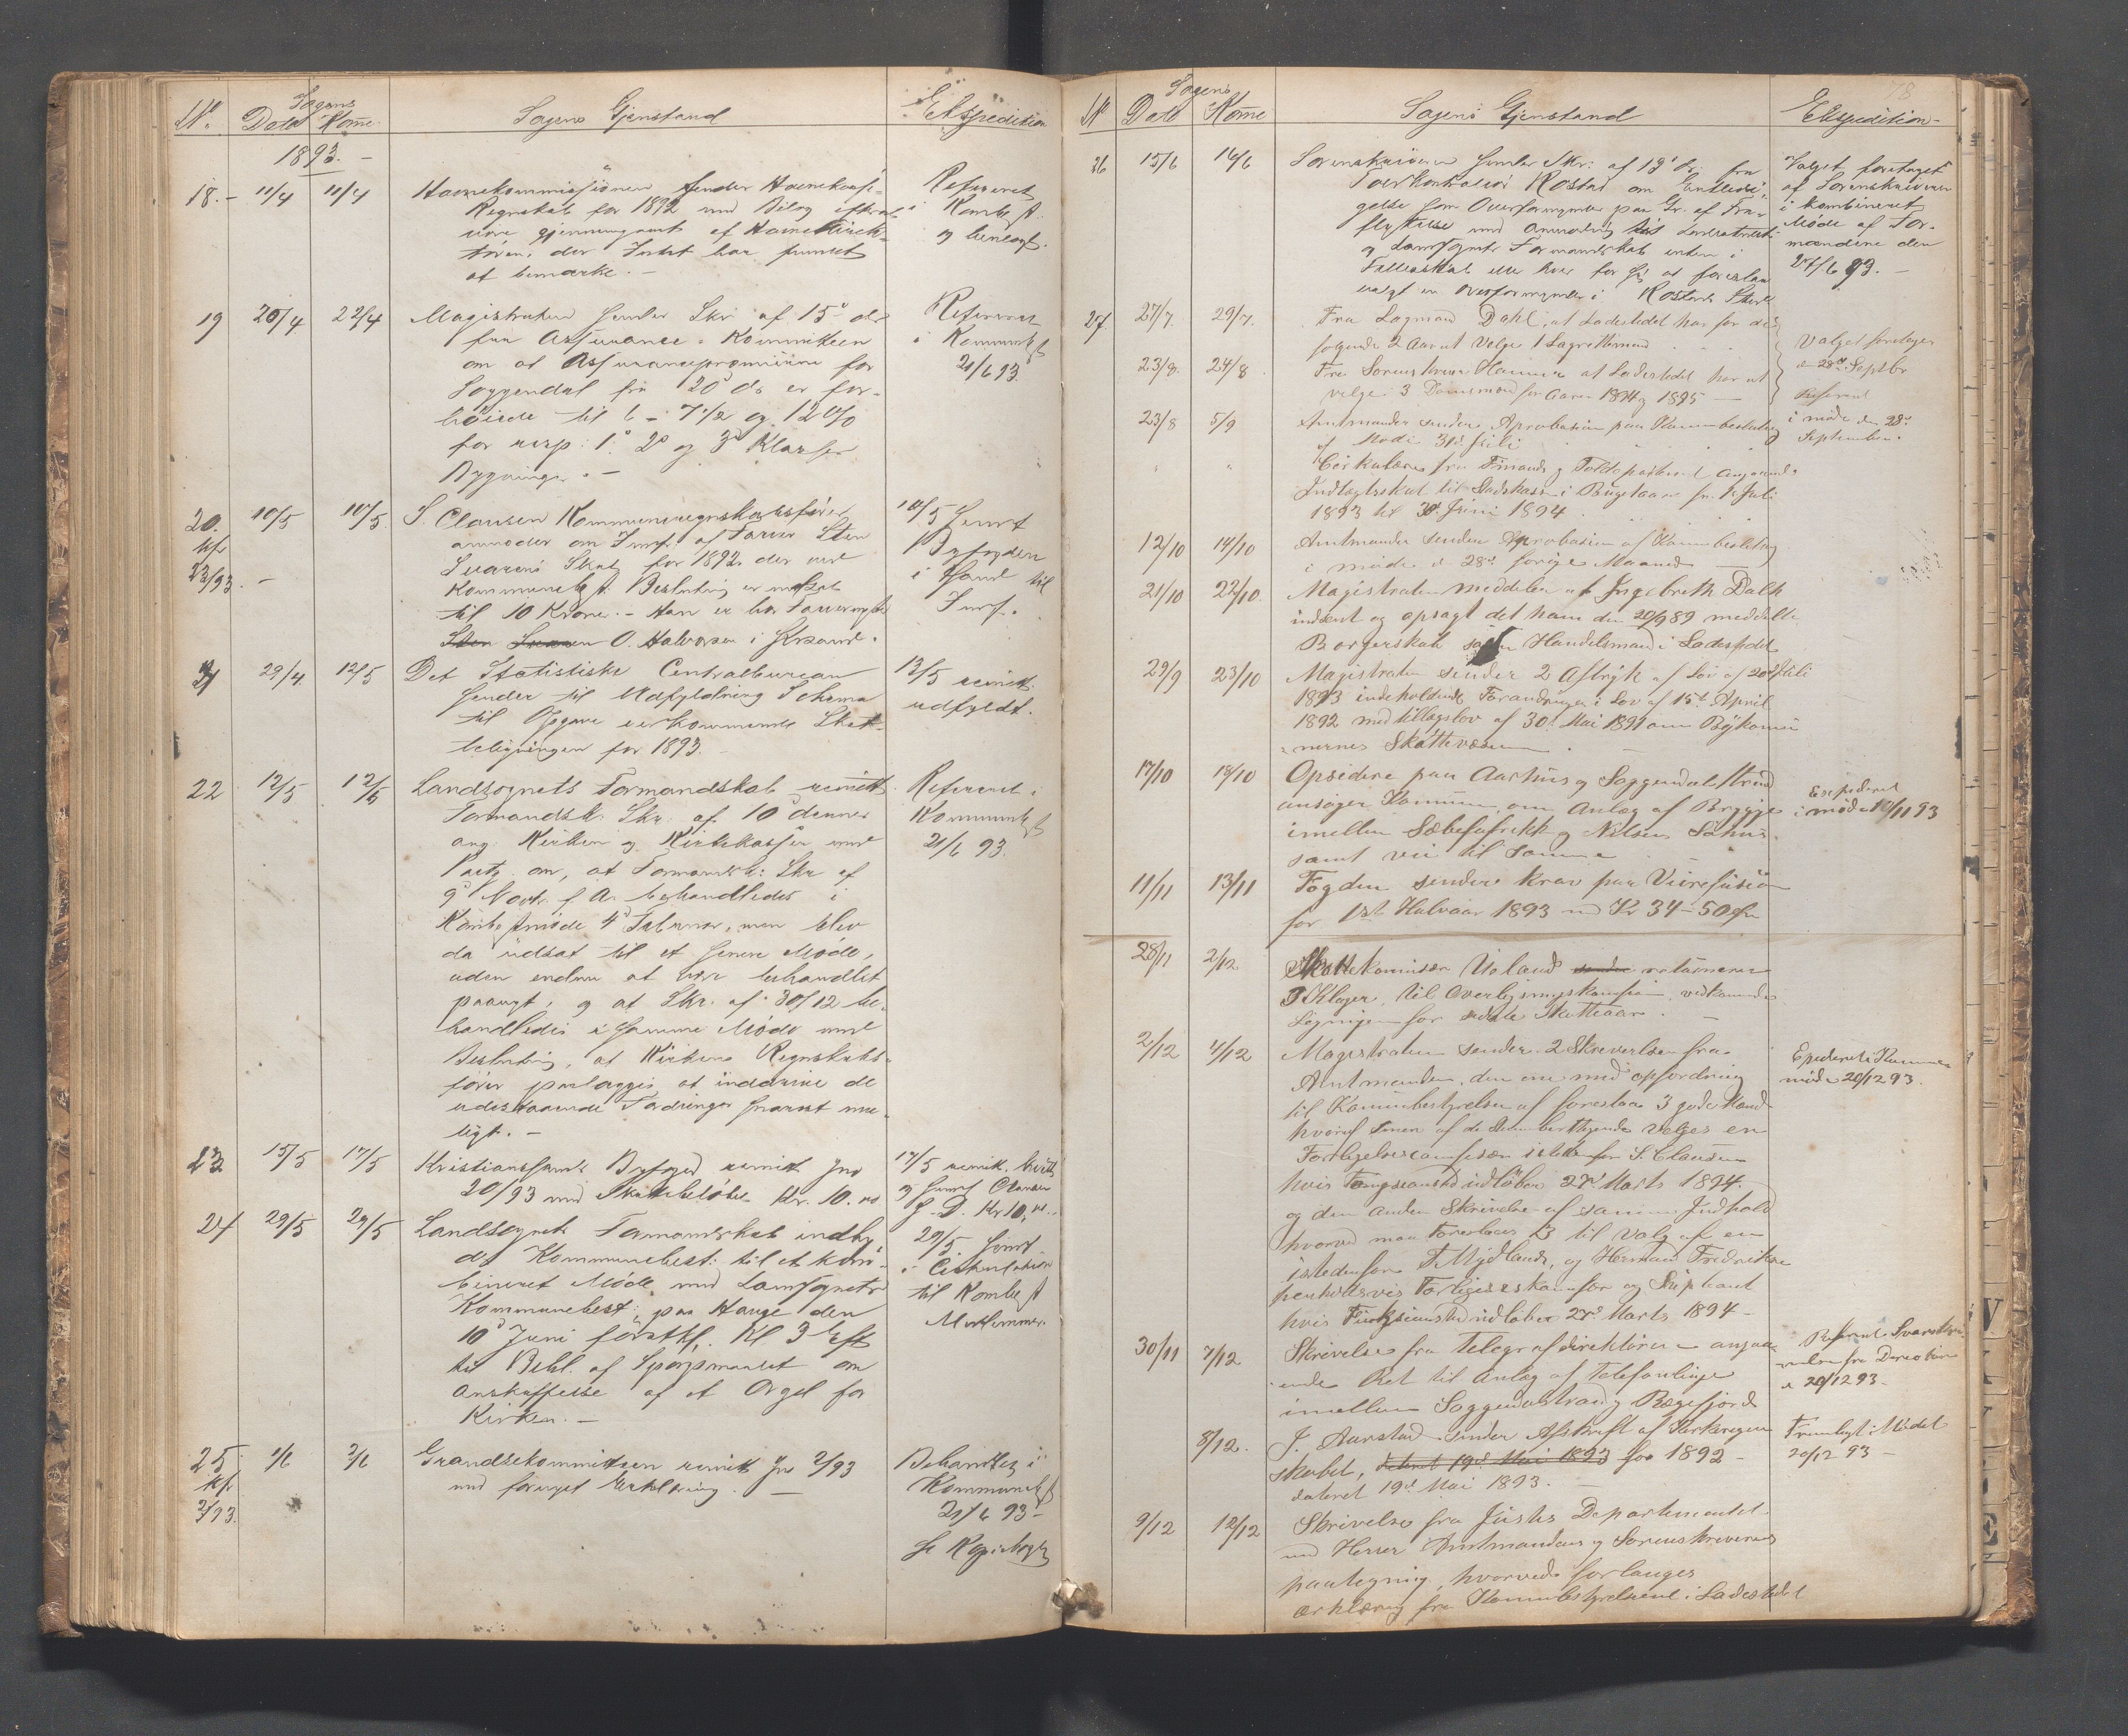 No. Sagens Dato Komne. Sagens Gjenstand Ekspedition
1893. –
18. – 11/4 11/4 Havnekommissionen sender Havnekasse-
Regnskab for 1892 med Bilag efterat
være gjennemgaaet af Havnedirek-
tøren, der Intet har funnet
at bemærke. –
Refereret
i Kombest.
og henlagt.
19 20/4 22/4 Magistraten sender Skr. af 15de ds
fra Assurance-Kommiteen
om at Assurancepræmierne for
Soggendal fra 20de ds er for-
høiede til 6 – 7 1/2 og 12 0/0
for resp: 1ste 2de og 3de Klasses
Bygninger. –
Refereret
i Kommunebst
21/6 93.
20. kfr 23/93. – 10/5 10/5. S. Clausen Kommuneregnskabsfører
anmoder om Indf. af Farver Sten
Svarens Skat for 1892, der ved
Kommunebst. Beslutning er nedsat
til 10 Kroner. – Han er hos Farvermester
O. Halvorsen i Krsand.
10/5 sendt
Byfogden
i Ksand til
Indf.
21 29/4. 12/5 Det Statistiske Centralbureau
sender til Udfyldning Schema
til Opgave vedkommende Skat-
teligningen for 1893. –
13/5 remitt.
udfyldt.
22 12/5 12/5 Landsognets Formandskab remitt.
Formandsk. Skr. af 10de dennes
ang. Kirken og Kirkekassen med
Paateg. om, at Formandsk: Skr af
9de Novbr. f. A. behandledes i
Kombestmøde 4de Februar, men blev
da udsat til et senere Møde,
uden endnu at være behandlet
paanyt, og at Skr. af 30/12 be-
handledes i samme Møde med
Beslutning, at Kirkens Regnskabs-
fører paalægges at inddrive de
udestaaende Fordringer snarest mu-
ligt. –
Refereret i
Kommunebst
21/6 93.
23 15/5 17/5 Kristianssands Byfoged remitt. Jno
20/93 med Skattebeløbet Kr. 10.00
17/5 remit. kvitt
og sendt Clausen
s. D. Kr 10,00.
24 29/5 29/5 Landsognets Formandskab indby-
der Kommunebest: til et kom-
bineret Møde med Landsognets
Kommunebest: paa Hauge den
10de Juni førstkl. Kl 3 Eft
til Behl. af Spørgsmaalet om
Anskaffelse af et Orgel for
Kirken. –
29/5 sendt
i Cirkulation
til Kombest
Medlemmer.
25 kfr 2/93. 1/6 2/6 Grandsekommitteen remitt Jno 2/93
med forlangt Erklæring. –
Behandlet i
Kommunebst
21/6 93 –
se Kopibogen
78
No Sagens Dato Komne Sagens Gjenstand Ekspedition –
26 15/6 16/6 Sorenskriveren sender Skr: af 13de ds. fra
Toldkontrollør Rostad om Entledi-
gelse som Overformynder paa Gr. af Fra-
flyttelse med Anmodning til Ladestedets
og Landsognets Formandskab enten i
Fællesskab eller hver for sig at foreslaa
valgt en Overformynder i Rostads Sted
Valget foretaget
af Sorenskriveren
i kombineret
Møde af For-
mændene den
27/6 93. –
27. 27/7. 29/7. Fra Lagmand Dahl, at Ladestedet har for de
følgende 2 Aar at Velge 1 Lagrettemand
23/8. 24/8 Fra Sorenskriver Hammer at Ladestedet har at
velge 3 Domsmænd for Aaret 1894 og 1895 –
Valget foretages
d 28de Septbr
23/8 5/9 Amtmanden sender Aprobasion paa Kommbeslutning
af Møde 31te Juli
Referert
i møde den 28de
September.
" " Cirkulære fra Finands og Tolddepartement angaaende
Indtægtsskat til Stadskassen i Budgetaaret fra 1ste Juli
1893 til 30te Juni 1894.
12/10 14/10 Amtmanden sender Aprobasion af Kommbeslutning
i møde d 28de forrige Maaned –
21/10 22/10 Magistraten meddeler at Ingebreth Dalh
indsent og opsagt det ham den 20/9 89 meddelte
Borgerskab som Handelsmand i Ladestedet
29/9 23/10 Magistraten sender 2 Aftryk af Lov af 20de Juli
1893 indeholdende Forandringer i Lov af 15de April
1892 med tillægslov af 30. Mai 1891 om Bykomu
nernes Skattevæsen – .
17/10 18/10 Opsidere paa Aarhus og Soggendalstrand
ansøger Komunen om Anlæg af Brygge
imellem Sæbefabrikk og Nilsens Søhus
samt vei til samme
Expederet
i møde 10/11 93
11/11 13/11 Fogden sender krav paa Veirefusion
for 1ste Halvaar 1893 med Kr 34 – 50 Øre
28/11 2/12. Skattekomisær Ueland sender retunerer
3 Klager til Overligningskomision, vedkommende
Ligningen for sidste Skatteaar. –
2/12 4/12 Magistraten sender 2 Skrivelser fra
Amtmanden, den ene med opfordring
til Kommbestyrelsen af foreslaa 3 gode Mænd
hvoraf senen af de Stemberettigende velges en
Forligelseskomisær istedenfor S. Clausen
hvis Fungsionstid udløber 27de Marts 1894.
og den anden Skrivelse af samme Indhold
hvorved maa foreslaaes 3 til Valg af en
istedenfor T. Mydland, og Herman Fredriksen
henholdsvis Forligelseskomisær og Suppleant
hvis Fungsionstid udløber 27de Marts 1894 –
Expederet i Komune
møde 20/12 93.
30/11 7/12 Skrivelse fra Telegrafdirektøren angaa-
ende Ret til Anlæg af Telefonlinje
imellem Soggendalstrand og Rægefjord
Referert. Svarskri
velse fra Direktøren
d 20/12 93.
8/12. J. Aarstad sender Afskrift af Kirkeregn
skabet, dateret 19de Mai 1893 for 1892 –
dateret 19de Mai 1893. –
Fremlagt i Mødet
20/12 93 –
9/12 12/12 Skrivelse fra Justis Departementet
med Herrer Amtmandens og Sorenskriverens
paategning, hvorved forlanges
erklæring fra Kommbestyrelsene i Ladestedet